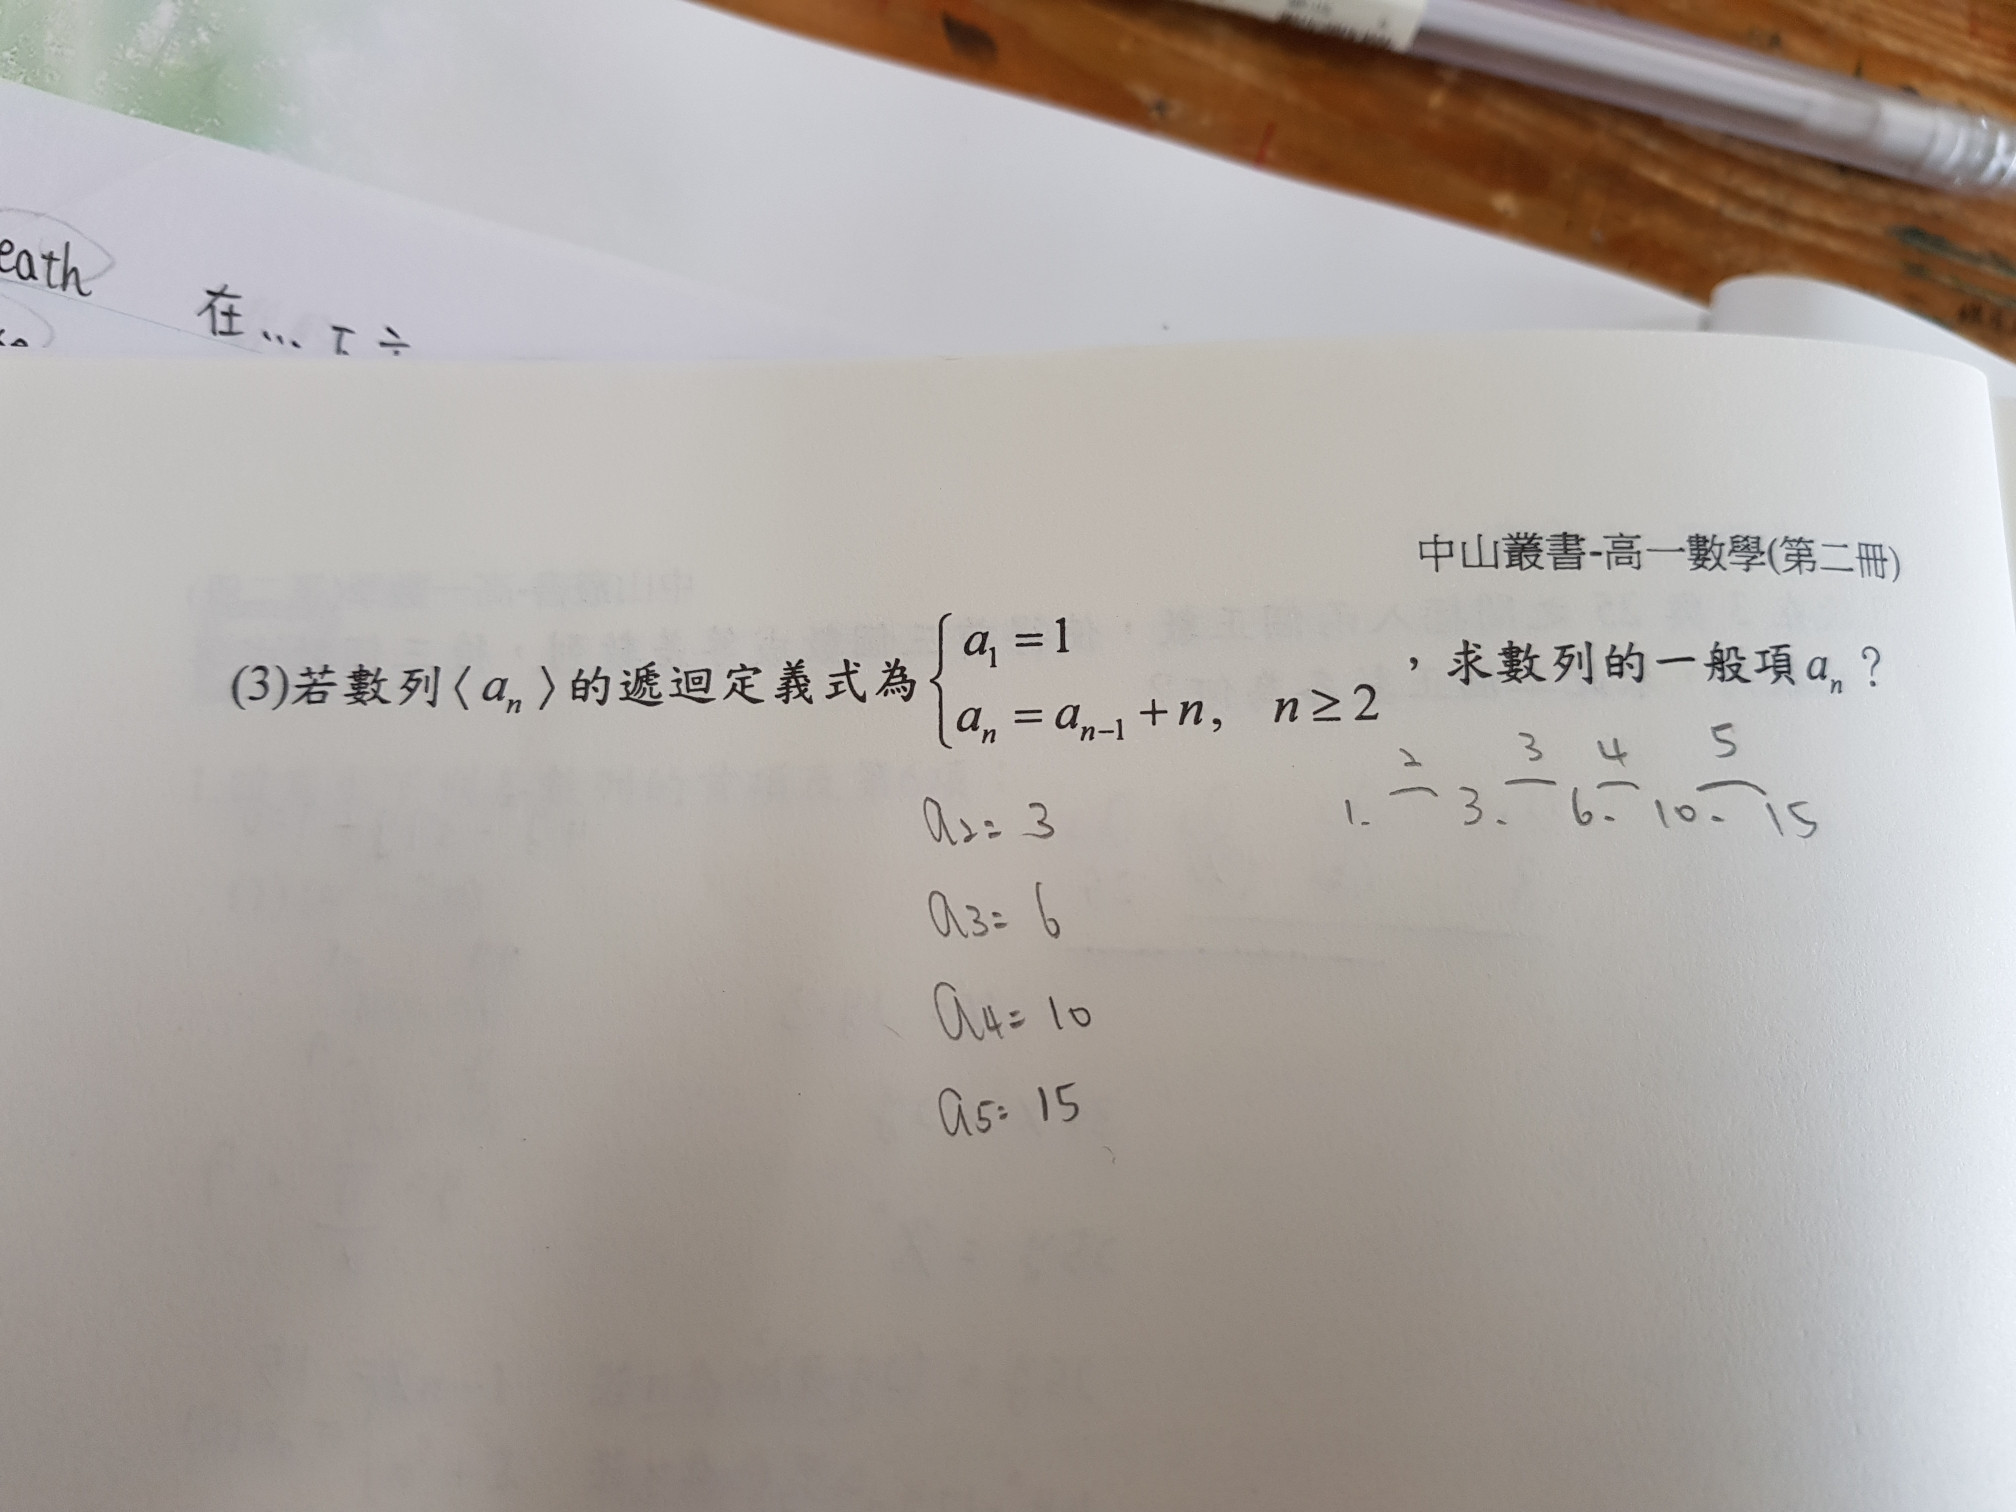 eath
在...下
中山叢書-高一數學(第二冊)
(3)若數列〈a_n〉的遞迴定義式為{a_1=1
a_n=a_{n-1}+n, n≥2 ，求數列的一般項a_n？
2 3 4 5
1. 3. 6. 10. 15
a_2=3
a_3=6
a_4=10
a_5=15